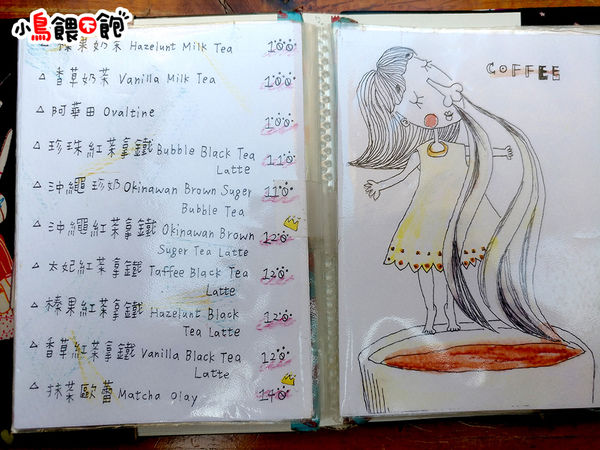 小鳥餵不飽
榛果奶茶 Hazelunt Milk Tea 100
香草奶茶 Vanilla Milk Tea 100
阿華田 Ovaltine 100
珍珠紅茶拿鐵 Bubble Black Tea 110
Latte
沖繩珍奶 Okinawan Brown Suger 110
Bubble Tea
沖繩紅茶拿鐵 Okinawan Brown 120
Suger Tea Latte
太妃紅茶拿鐵 Taffee Black Tea 120
Latte
榛果紅茶拿鐵 Hazelunt Black 120
Tea Latte
香草紅茶拿鐵 Vanilla Black Tea 120
Latte
抹茶歐蕾 Matcha Olay 140
COFFEE